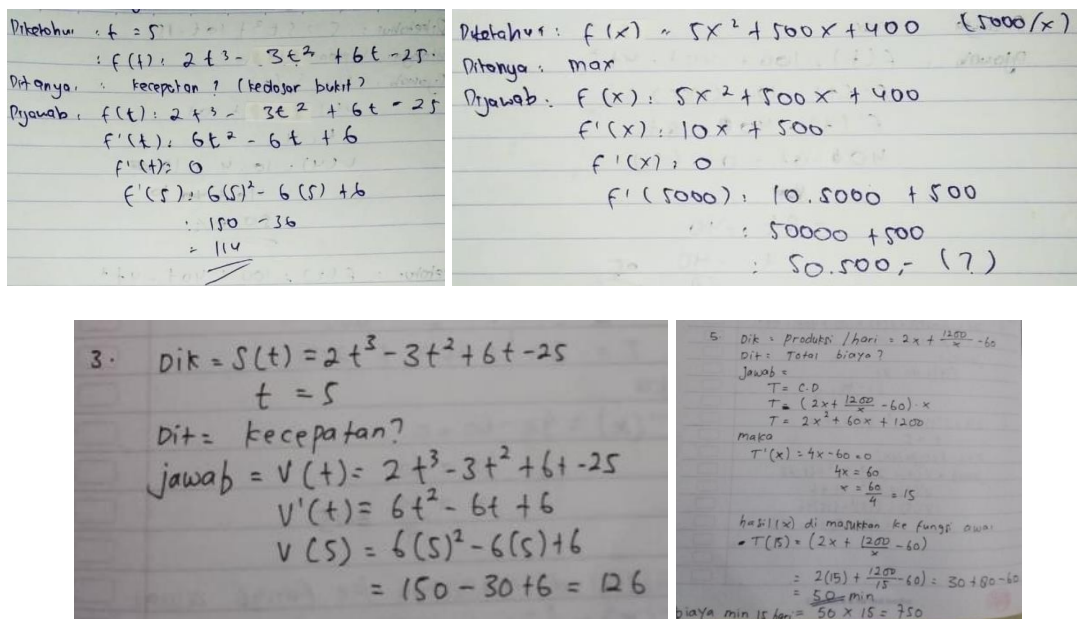 Diketahui : t = 5
: f(t) : 2t³ - 3t² + 6t - 25.
Ditanya : kecepatan ? (kedasar bukit)
Dijawab : f(t) : 2t³ - 3t² + 6t - 25
f'(t) : 6t² - 6t + 6
f'(t) = 0
f'(5) : 6(5)² - 6(5) + 6
: 150 - 36
= 114
Diketahui : f(x) = 5x² + 500x + 400 (5000/x)
Ditanya : max
Dijawab : f(x) : 5x² + 500x + 400
f'(x) : 10x + 500
f'(x) : 0
f'(5000) : 10.5000 + 500
: 50000 + 500
: 50.500,- (?)
3. Dik = S(t) = 2t³ - 3t² + 6t - 25
t = 5
Dit = kecepatan?
jawab = V(t) = 2t³ - 3t² + 6t - 25
V'(t) = 6t² - 6t + 6
V(5) = 6(5)² - 6(5) + 6
= 150 - 30 + 6 = 126
5 Dik = Produksi /hari = 2x + 1200/x - 60
Dit = Total biaya?
Jawab =
T = C.D
T = (2x + 1200/x - 60) . x
T = 2x² + 60x + 1200
maka
T'(x) = 4x - 60 = 0
4x = 60
x = 60/4 = 15
hasil (x) di masukkan ke fungsi awal
• T(15) = (2x + 1200/x - 60)
= 2(15) + 1200/15 - 60) = 30 + 80 - 60
= 50 min
biaya min 15 hari = 50 x 15 = 750